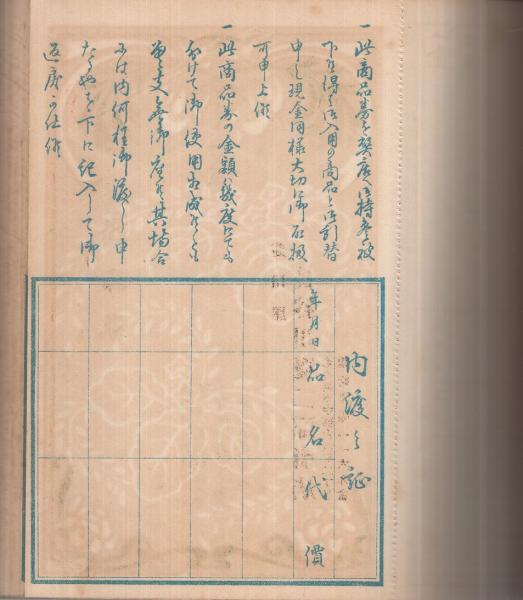 一此商品券を弊店へ御持参被
下候得ば御入用の商品と御引替
申し現金同様大切に御取扱
可申上候
一此商品券の金額ハ幾度にても
分けて御使用相成るとも
差支無御座候其場合
には内何程御渡し申
たるやを下に記入して御
返戻可仕候
内渡之証
年月日
品名
代價